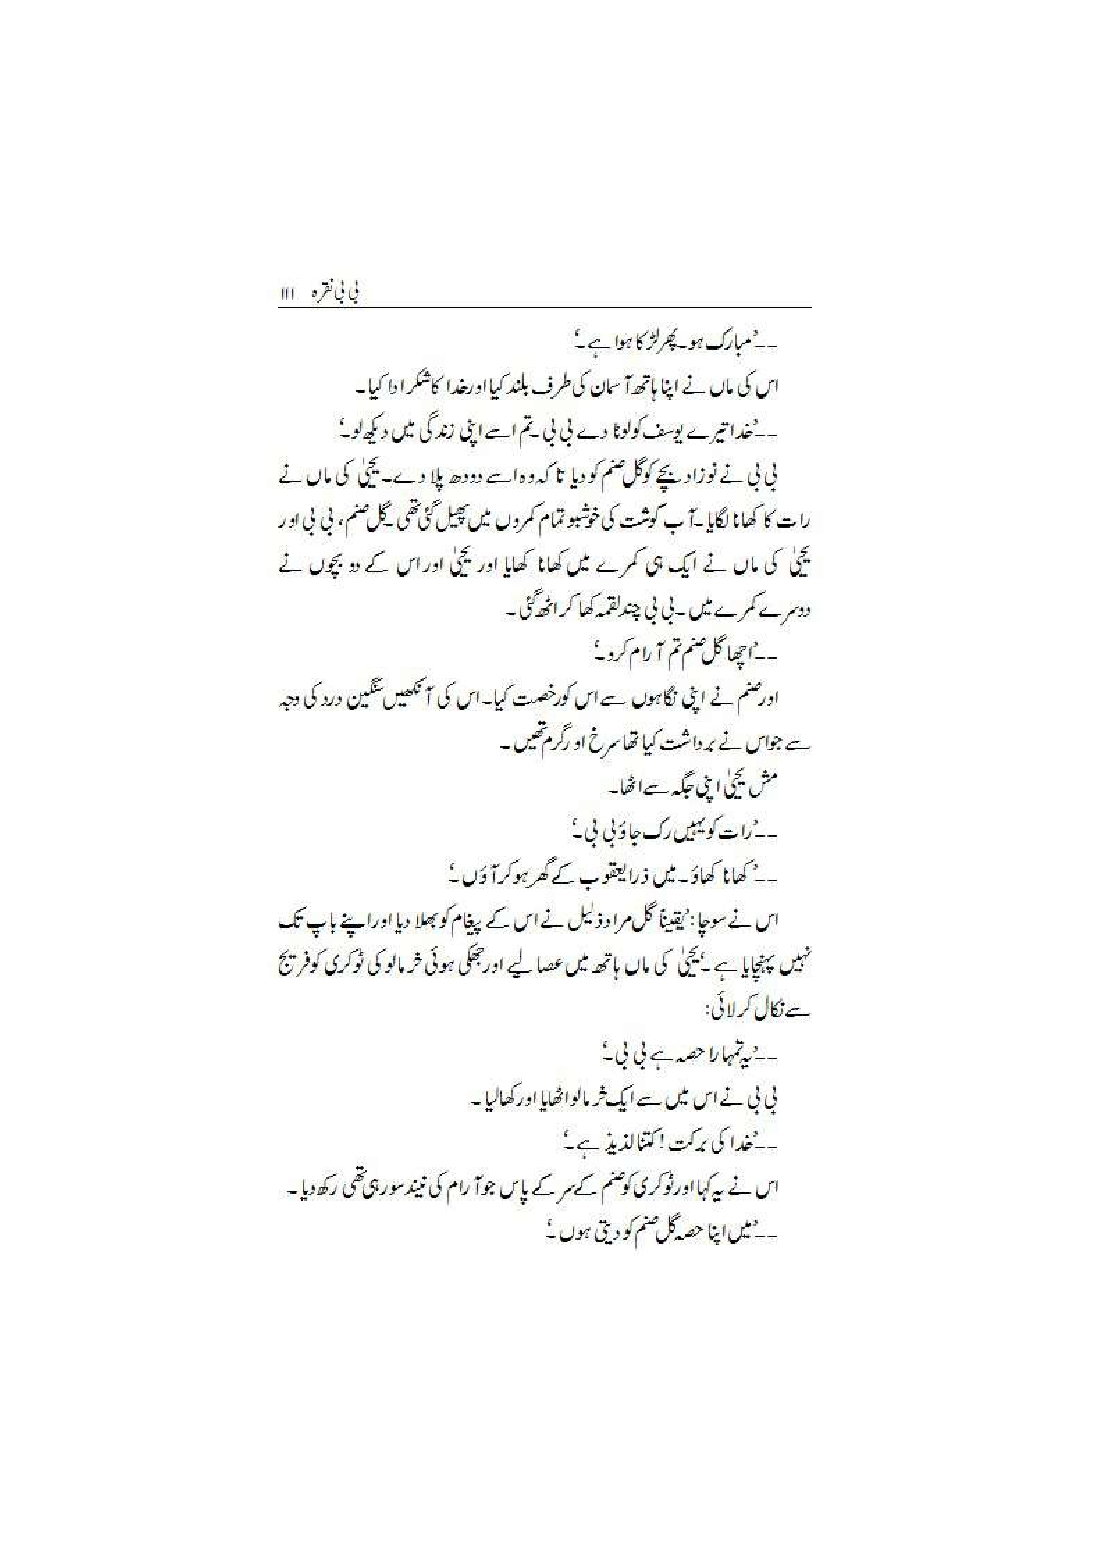 بی بی نقرہ ۱۱۱
__’مبارک ہو۔ پھر لڑکا ہوا ہے۔‘
اس کی ماں نے اپنا ہاتھ آسمان کی طرف بلند کیا اور خدا کا شکر ادا کیا۔
__’خدا تیرے یوسف کو لوٹا دے بی بی۔ تم اسے اپنی زندگی میں دیکھ لو۔‘
بی بی نے نوزاد بچے کو گل صنم کو دیا تا کہ وہ اسے دودھ پلا دے۔ یحییٰ کی ماں نے
رات کا کھانا لگایا۔ آب گوشت کی خوشبو تمام کمروں میں پھیل گئی تھی۔ گل صنم، بی بی اور
یحییٰ کی ماں نے ایک ہی کمرے میں کھانا کھایا اور یحییٰ اور اس کے دو بچوں نے
دوسرے کمرے میں۔ بی بی چند لقمہ کھا کر اٹھ گئی۔
__’اچھا گل صنم تم آرام کرو۔‘
اور صنم نے اپنی نگاہوں سے اس کو رخصت کیا۔ اس کی آنکھیں سنگین درد کی وجہ
سے جو اس نے برداشت کیا تھا سرخ اور گرم تھیں۔
مش یحییٰ اپنی جگہ سے اٹھا۔
__’رات کو یہیں رک جاؤ بی بی۔‘
__’کھانا کھاؤ۔ میں ذرا یعقوب کے گھر ہو کر آؤں۔‘
اس نے سوچا: ’یقیناً گل مراد ذلیل نے اس کے پیغام کو بھلا دیا اور اپنے باپ تک
نہیں پہنچایا ہے۔‘ یحییٰ کی ماں ہاتھ میں عصا لیے اور جھکی ہوئی خرمالو کی ٹوکری کو فریج
سے نکال کر لائی:
__’یہ تمہارا حصہ ہے بی بی۔‘
بی بی نے اس میں سے ایک خرمالو اٹھایا اور کھالیا۔
__’خدا کی برکت! کتنا لذیذ ہے۔‘
اس نے یہ کہا اور ٹوکری کو صنم کے سر کے پاس جو آرام کی نیند سو رہی تھی رکھ دیا۔
__’میں اپنا حصہ گل صنم کو دیتی ہوں۔‘